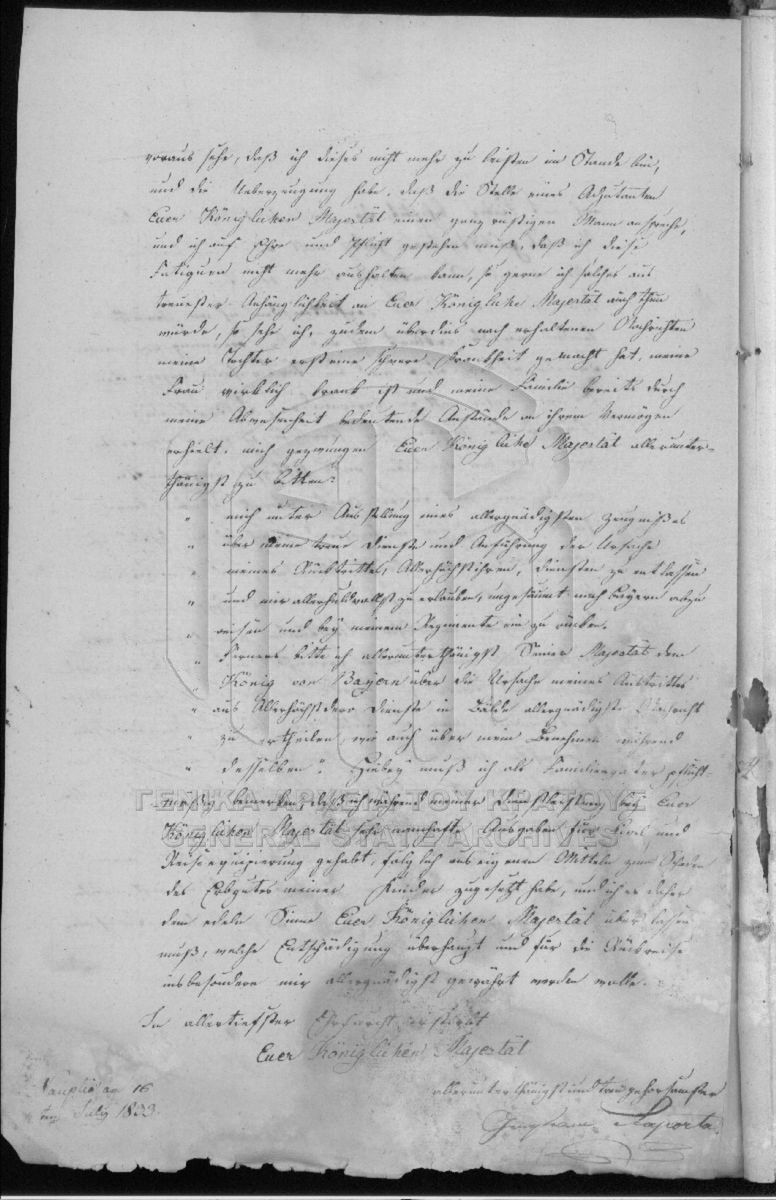 voraus sehe, daß ich dieses nicht mehr zu leisten im Stande bin,
und die Ueberzeugung habe, daß die Stelle eines Adjutanten
Euer Königlichen Majestät einen ganz rüstigen Mann anspreche,
und ich auf Ehre und Pflicht gestehen muß, daß ich diese
Fatiguen nicht mehr aushalten kann, so gerne ich solches aus
treuester Anhänglichkeit an Euer Königliche Majestät auch thun
würde, so sehe ich, zudem überdies nach erhaltenen Nachrichten
meine Tochter erst eine schwere Krankheit gemacht hat, meine
Frau wirklich krank ist und meine Familie bereits durch
meine Abwesenheit bedeutende Anstände an ihrem Vermögen
erhielt, mich gezwungen Euer Königliche Majestät allerunter-
thänigst zu bitten:
" mich unter Ausstellung eines allergnädigsten Zeugnißes
" über meine treue Dienste und Anführung der Ursache
" meines Rücktrittes, Allerhöchstihren Diensten zu entlassen
" und mir allerhuldvollst zu erlauben, ungesäumt nach Bayern abzu
" reisen und bey meinem Regimente ein zu rücken.
" Ferners bitte ich allerunterthänigst Seiner Majestät dem
" König von Bayern über die Ursache meines Austrittes
" aus Allerhöchstdero Dienste in Bälde allergnädigste
" zu ertheilen, wie auch über mein Benehmen während
" desselben". Hiebey muß ich als Familienvater pflicht-
mäßig bemerken, daß ich während meiner Dienstleistung bey Euer
Königlichen Majestät sehr namhafte Ausgaben für und
Reiseequipierung gehabt, folglich aus eigenen Mitteln zum Schaden
des Erbgutes meiner Kinder zugesetzt habe, und ich es daher
dem edeln Sinne Euer Königlichen Majestät überlassen
muß, welche Entschädigung überhaupt und für die Rückreise
insbesondere mir allergnädigst gewährt werden wolle.
In allertiefster Ehrfurcht erstirbt
Euer Königlichen Majestät
Nauplia am 16
ten July 1833.
allerunterthänigst und treu gehorsamster
Laporta
ΓΕΝΙΚΑ ΑΡΧΕΙΑ ΤΟΥ ΚΡΑΤΟΥΣ
GENERAL STATE ARCHIVES